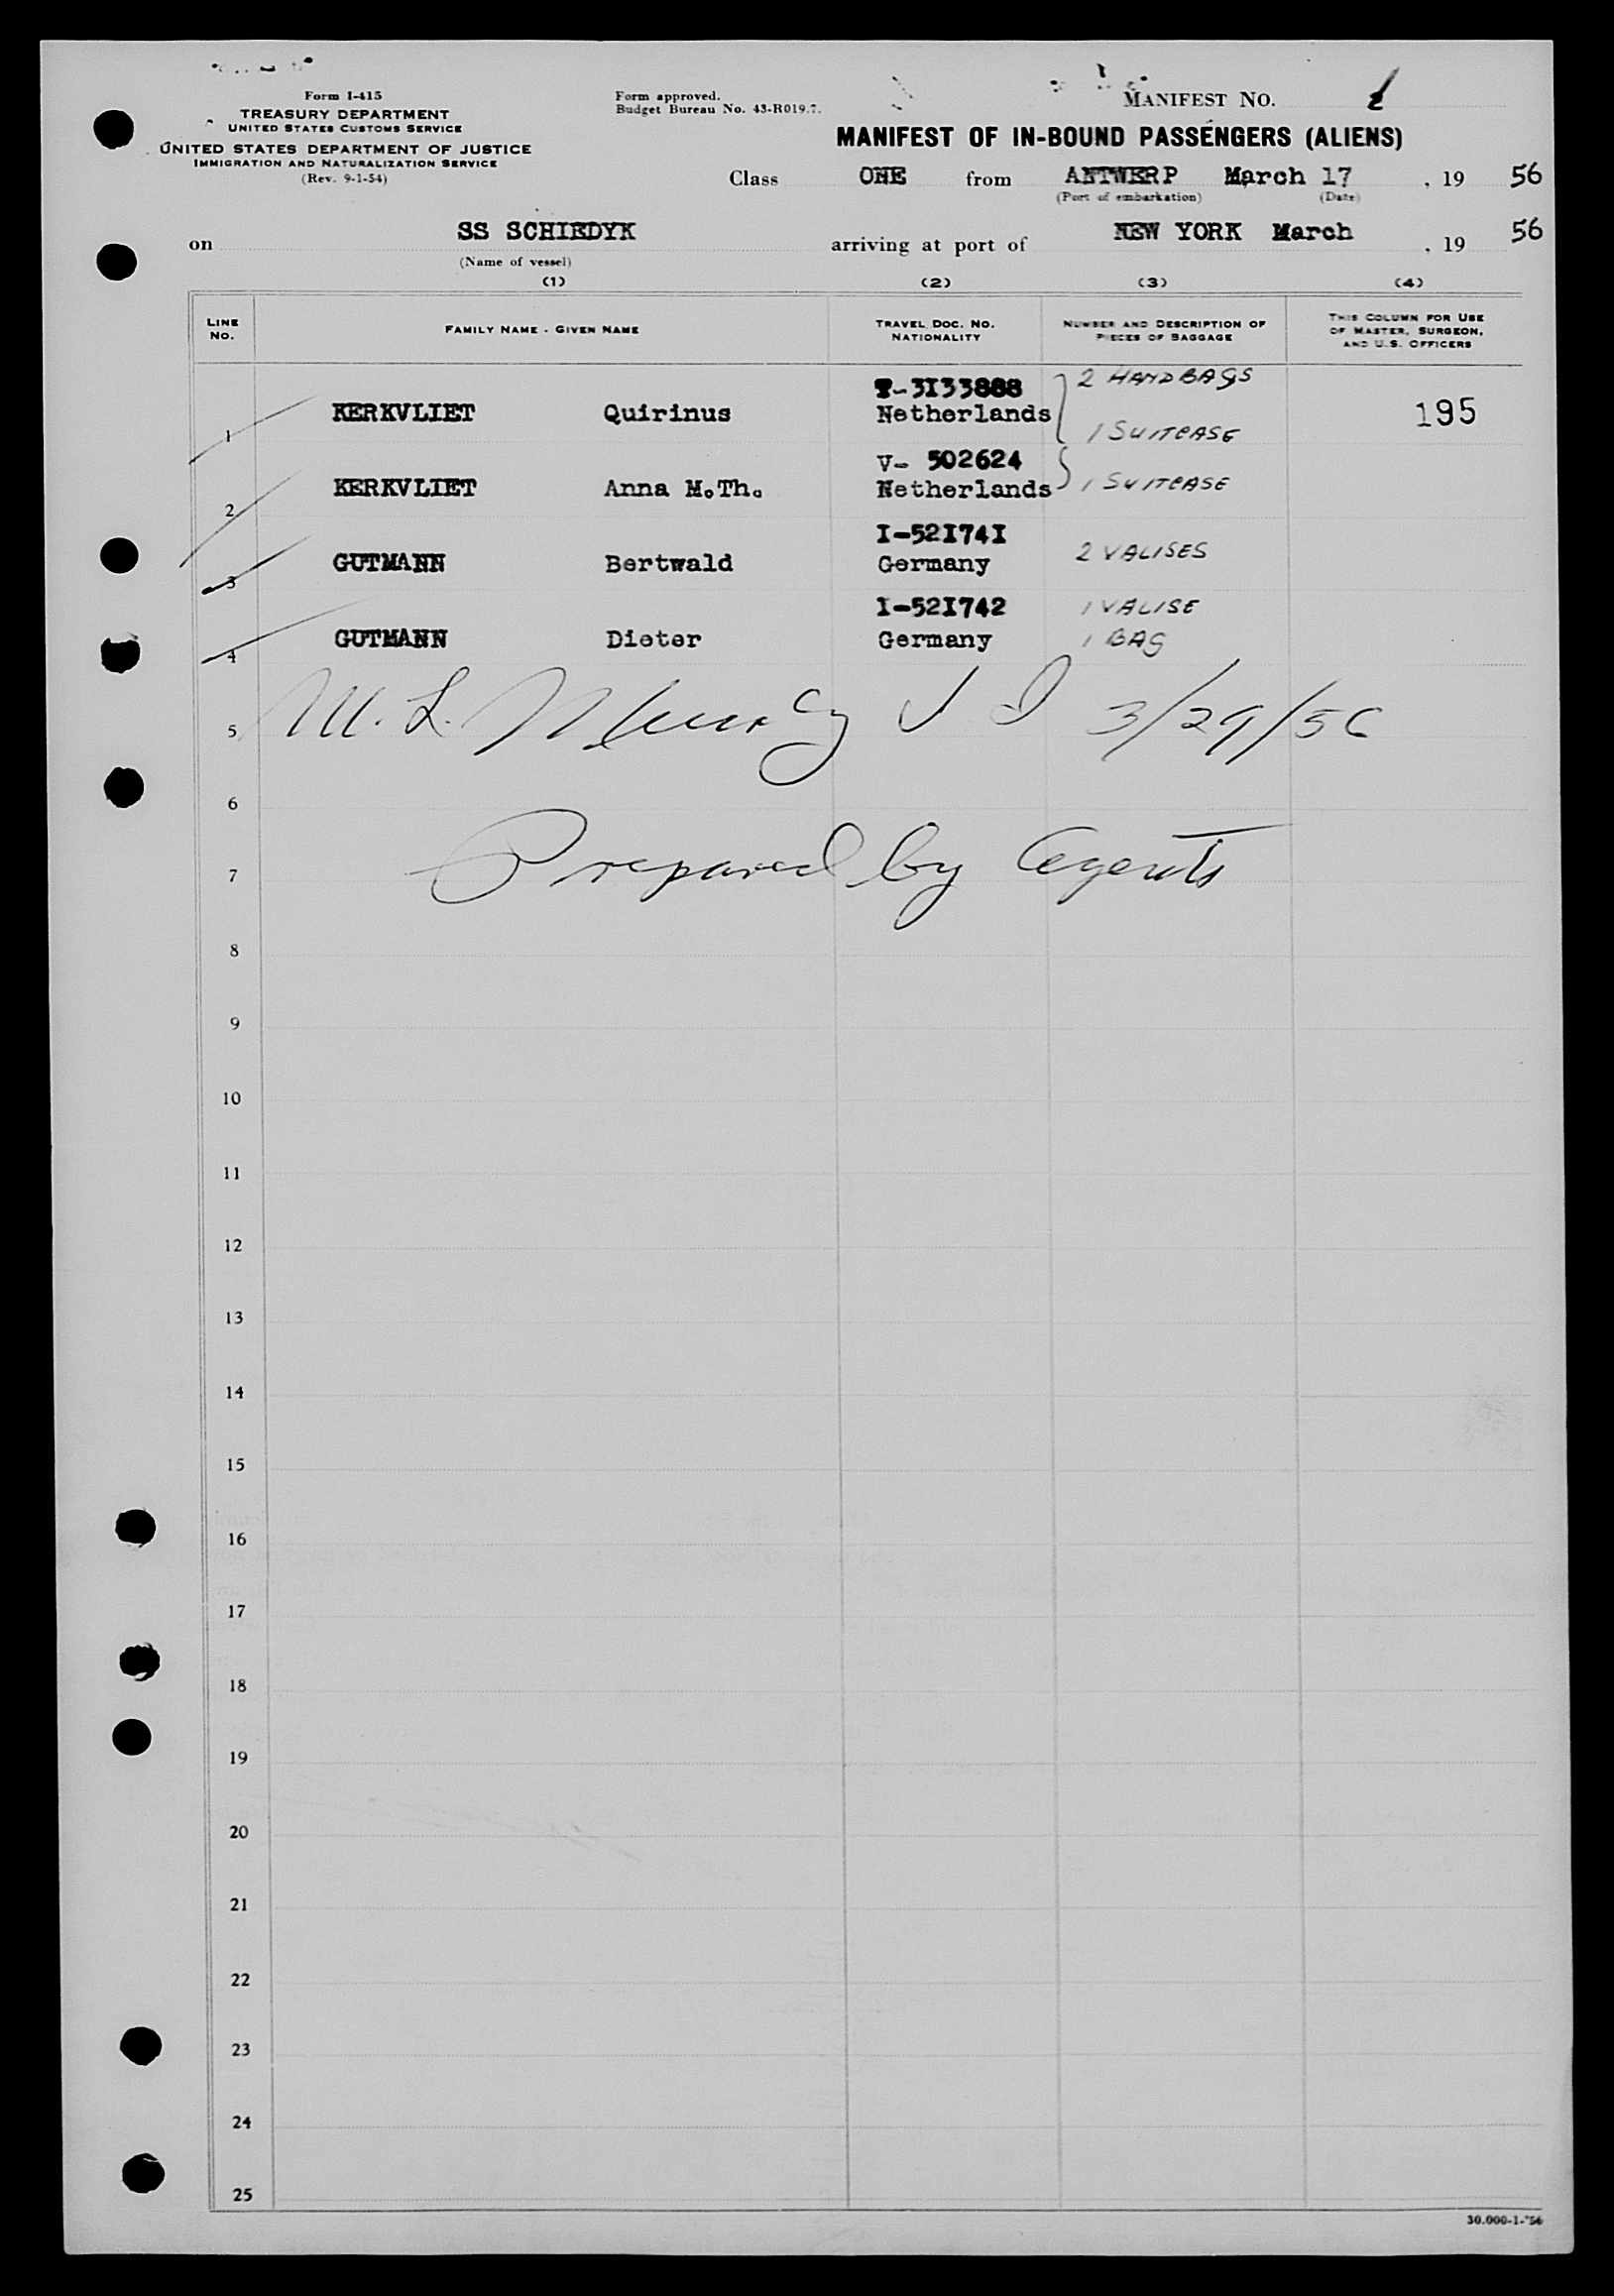 Form I-415
TREASURY DEPARTMENT
UNITED STATES CUSTOMS SERVICE
UNITED STATES DEPARTMENT OF JUSTICE
IMMIGRATION AND NATURALIZATION SERVICE
(Rev. 9-1-54)
Form approved.
Budget Bureau No. 43-R019.7.
MANIFEST NO.
MANIFEST OF IN-BOUND PASSENGERS (ALIENS)
Class ONE from ANTWERP March 17, 19 56
(Port of embarkation) (Date)
on SS SCHIEDYK arriving at port of NEW YORK March , 19 56
(Name of vessel)
(1) (2) (3) (4)
LINE NO. FAMILY NAME - GIVEN NAME TRAVEL DOC. NO. NATIONALITY NUMBER AND DESCRIPTION OF PIECES OF BAGGAGE THIS COLUMN FOR USE OF MASTER, SURGEON, AND U.S. OFFICERS
T-3133888 2 HANDBAGS
1 KERKVLIET Quirinus Netherlands 1 SUITCASE 195
V- 502624
2 KERKVLIET Anna M.Th. Netherlands 1 SUITCASE
I-52I74I
3 GUTMANN Bertwald Germany 2 VALISES
I-52I742 1 VALISE
4 GUTMANN Dieter Germany 1 BAG
5 M. L. 3/29/56
6
7 Prepared by Agents
8
9
10
11
12
13
14
15
16
17
18
19
20
21
22
23
24
25
30.000-1-'56